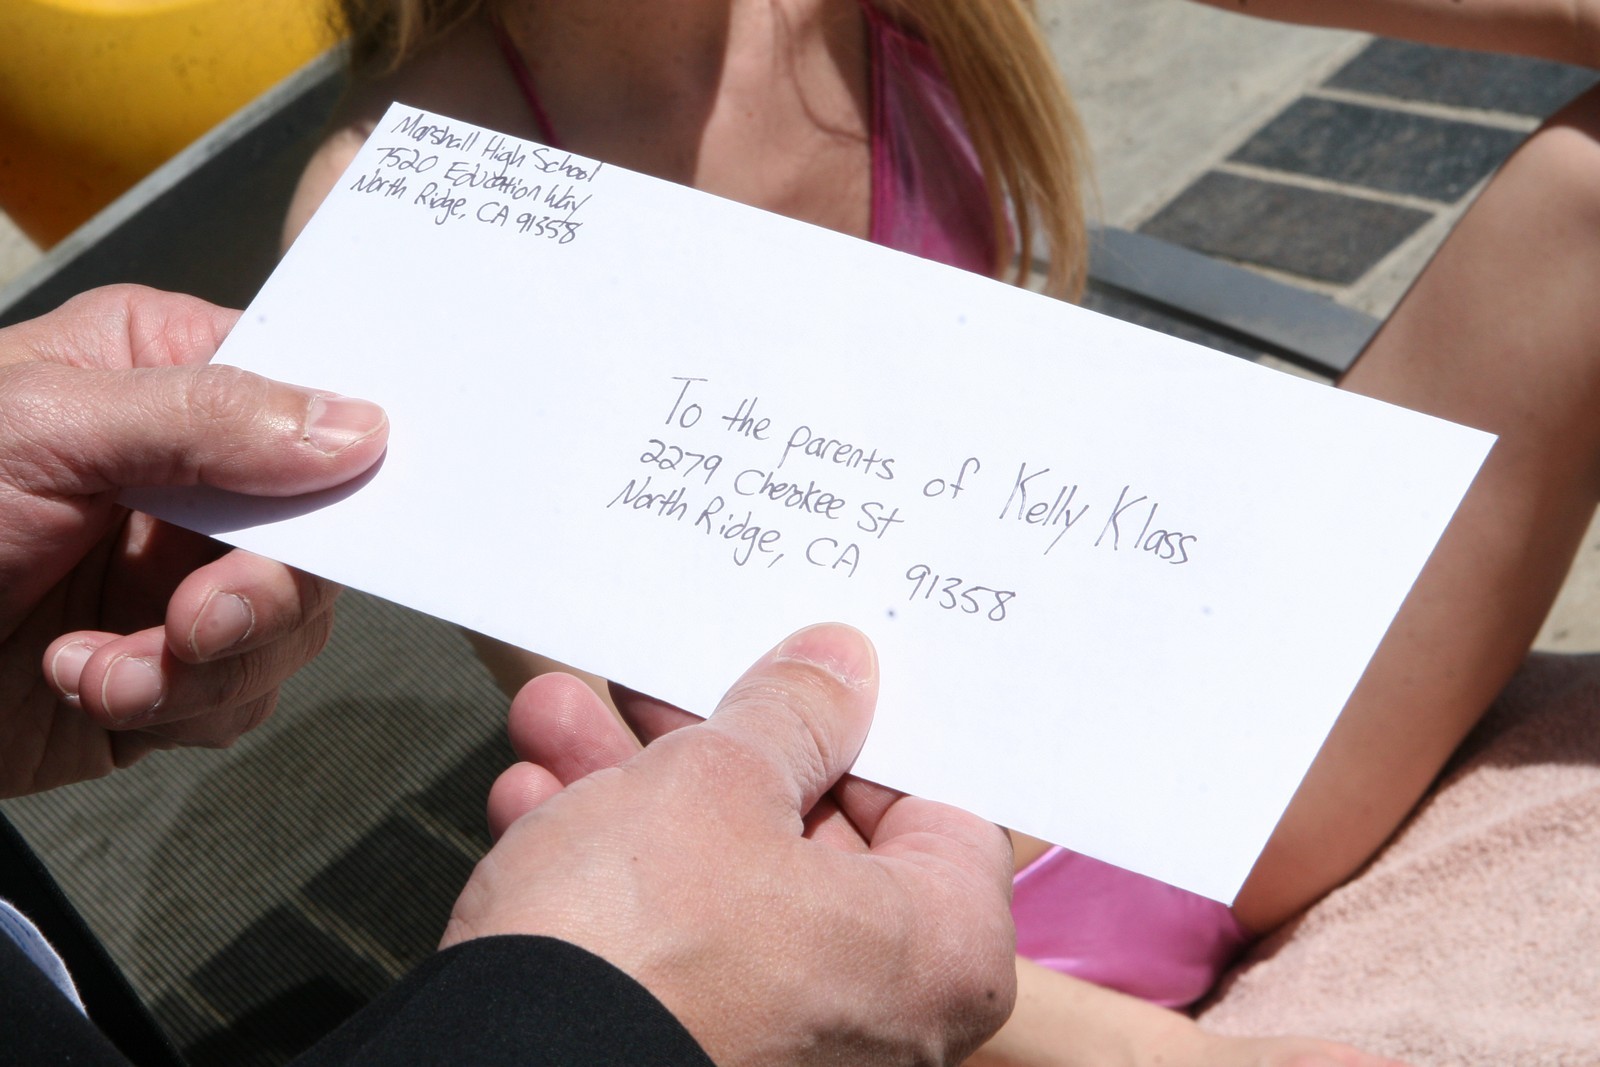 Marshall High School
7520 Education Way
North Ridge, CA 91358
To the parents of Kelly Klass
2279 Cherokee St
North Ridge, CA 91358